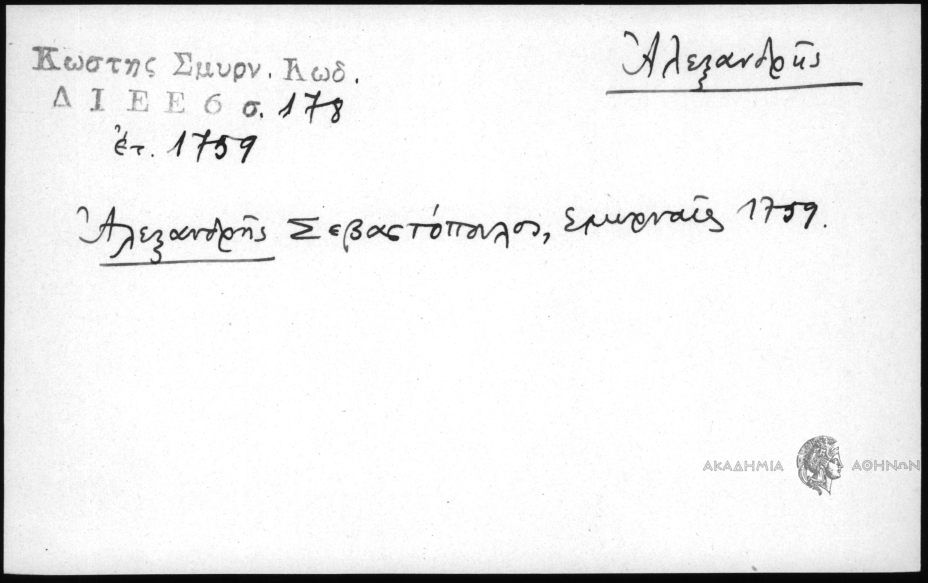 Κωστης Σμυρν. Κωδ.
Δ Ι Ε Ε 6 σ. 178
ἔτ. 1759
Ἀλεξανδρῆς
Ἀλεξανδρῆς Σεβαστόπουλος, Σμυρναῖος 1759.
ΑΚΑΔΗΜΙΑ ΑΘΗΝΩΝ